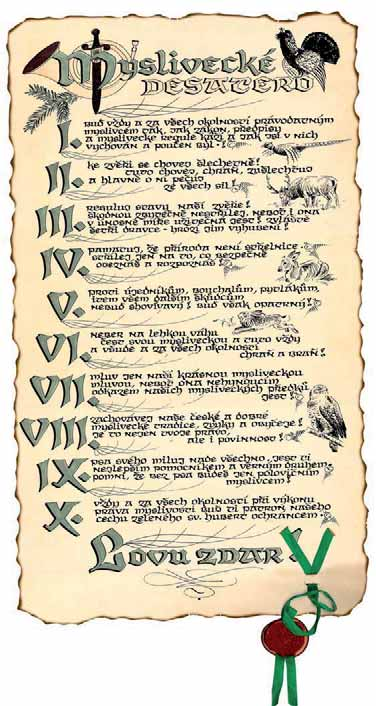 Myslivecké
DESATERO
I. Buď vždy a za všech okolností právoplatným
myslivcem tak, jak zákon, předpisy
a myslivecké regule káží a jak jsi v nich
vychován a poučen byl!
II. Ke zvěři se chovej šlechetně!
Tuto chovej, chraň, zušlechťuj
a hlavně o ni pečuj
ze všech sil!
III. Reguluj stavy naší zvěře!
Škodnou zbytečně nestřílej, neboť i ona
v únosné míře užitečná jest! Zvláště
šetři dravce - hrozí jim vyhubení!
IV. Pamatuj, že příroda není střelnice.
Střílej jen na to, co bezpečně
obeznáš a rozpoznáš!
V. Proti újedníkům, pychu
lům, pytlákům,
item všem dalším škůdcům
nebuď shovívavý! Buď však opatrný!
VI. Neber na lehkou váhu
čest svou mysliveckou a tuto vždy
a všude a za všech okolností
chraň a braň!
VII. Mluv jen naší krásnou mysliveckou
mluvou, neboť ona nehynoucím
odkazem našich mysliveckých předků
jest!
VIII. Zachovávej naše české a dobré
myslivecké tradice, zvyky a obyčeje!
Je to nejen tvoje právo,
ale i povinnost!
IX. Psa svého miluj nade všechno. Jest ti
nejlepším pomocníkem a věrným druhem.
Pomni, že bez psa budeš jen polovičním
myslivcem!
X. Vždy a za všech okolností při výkonu
práva myslivosti buď ti patron našeho
cechu zeleného sv. Hubert ochráncem.
Lovu zdar!